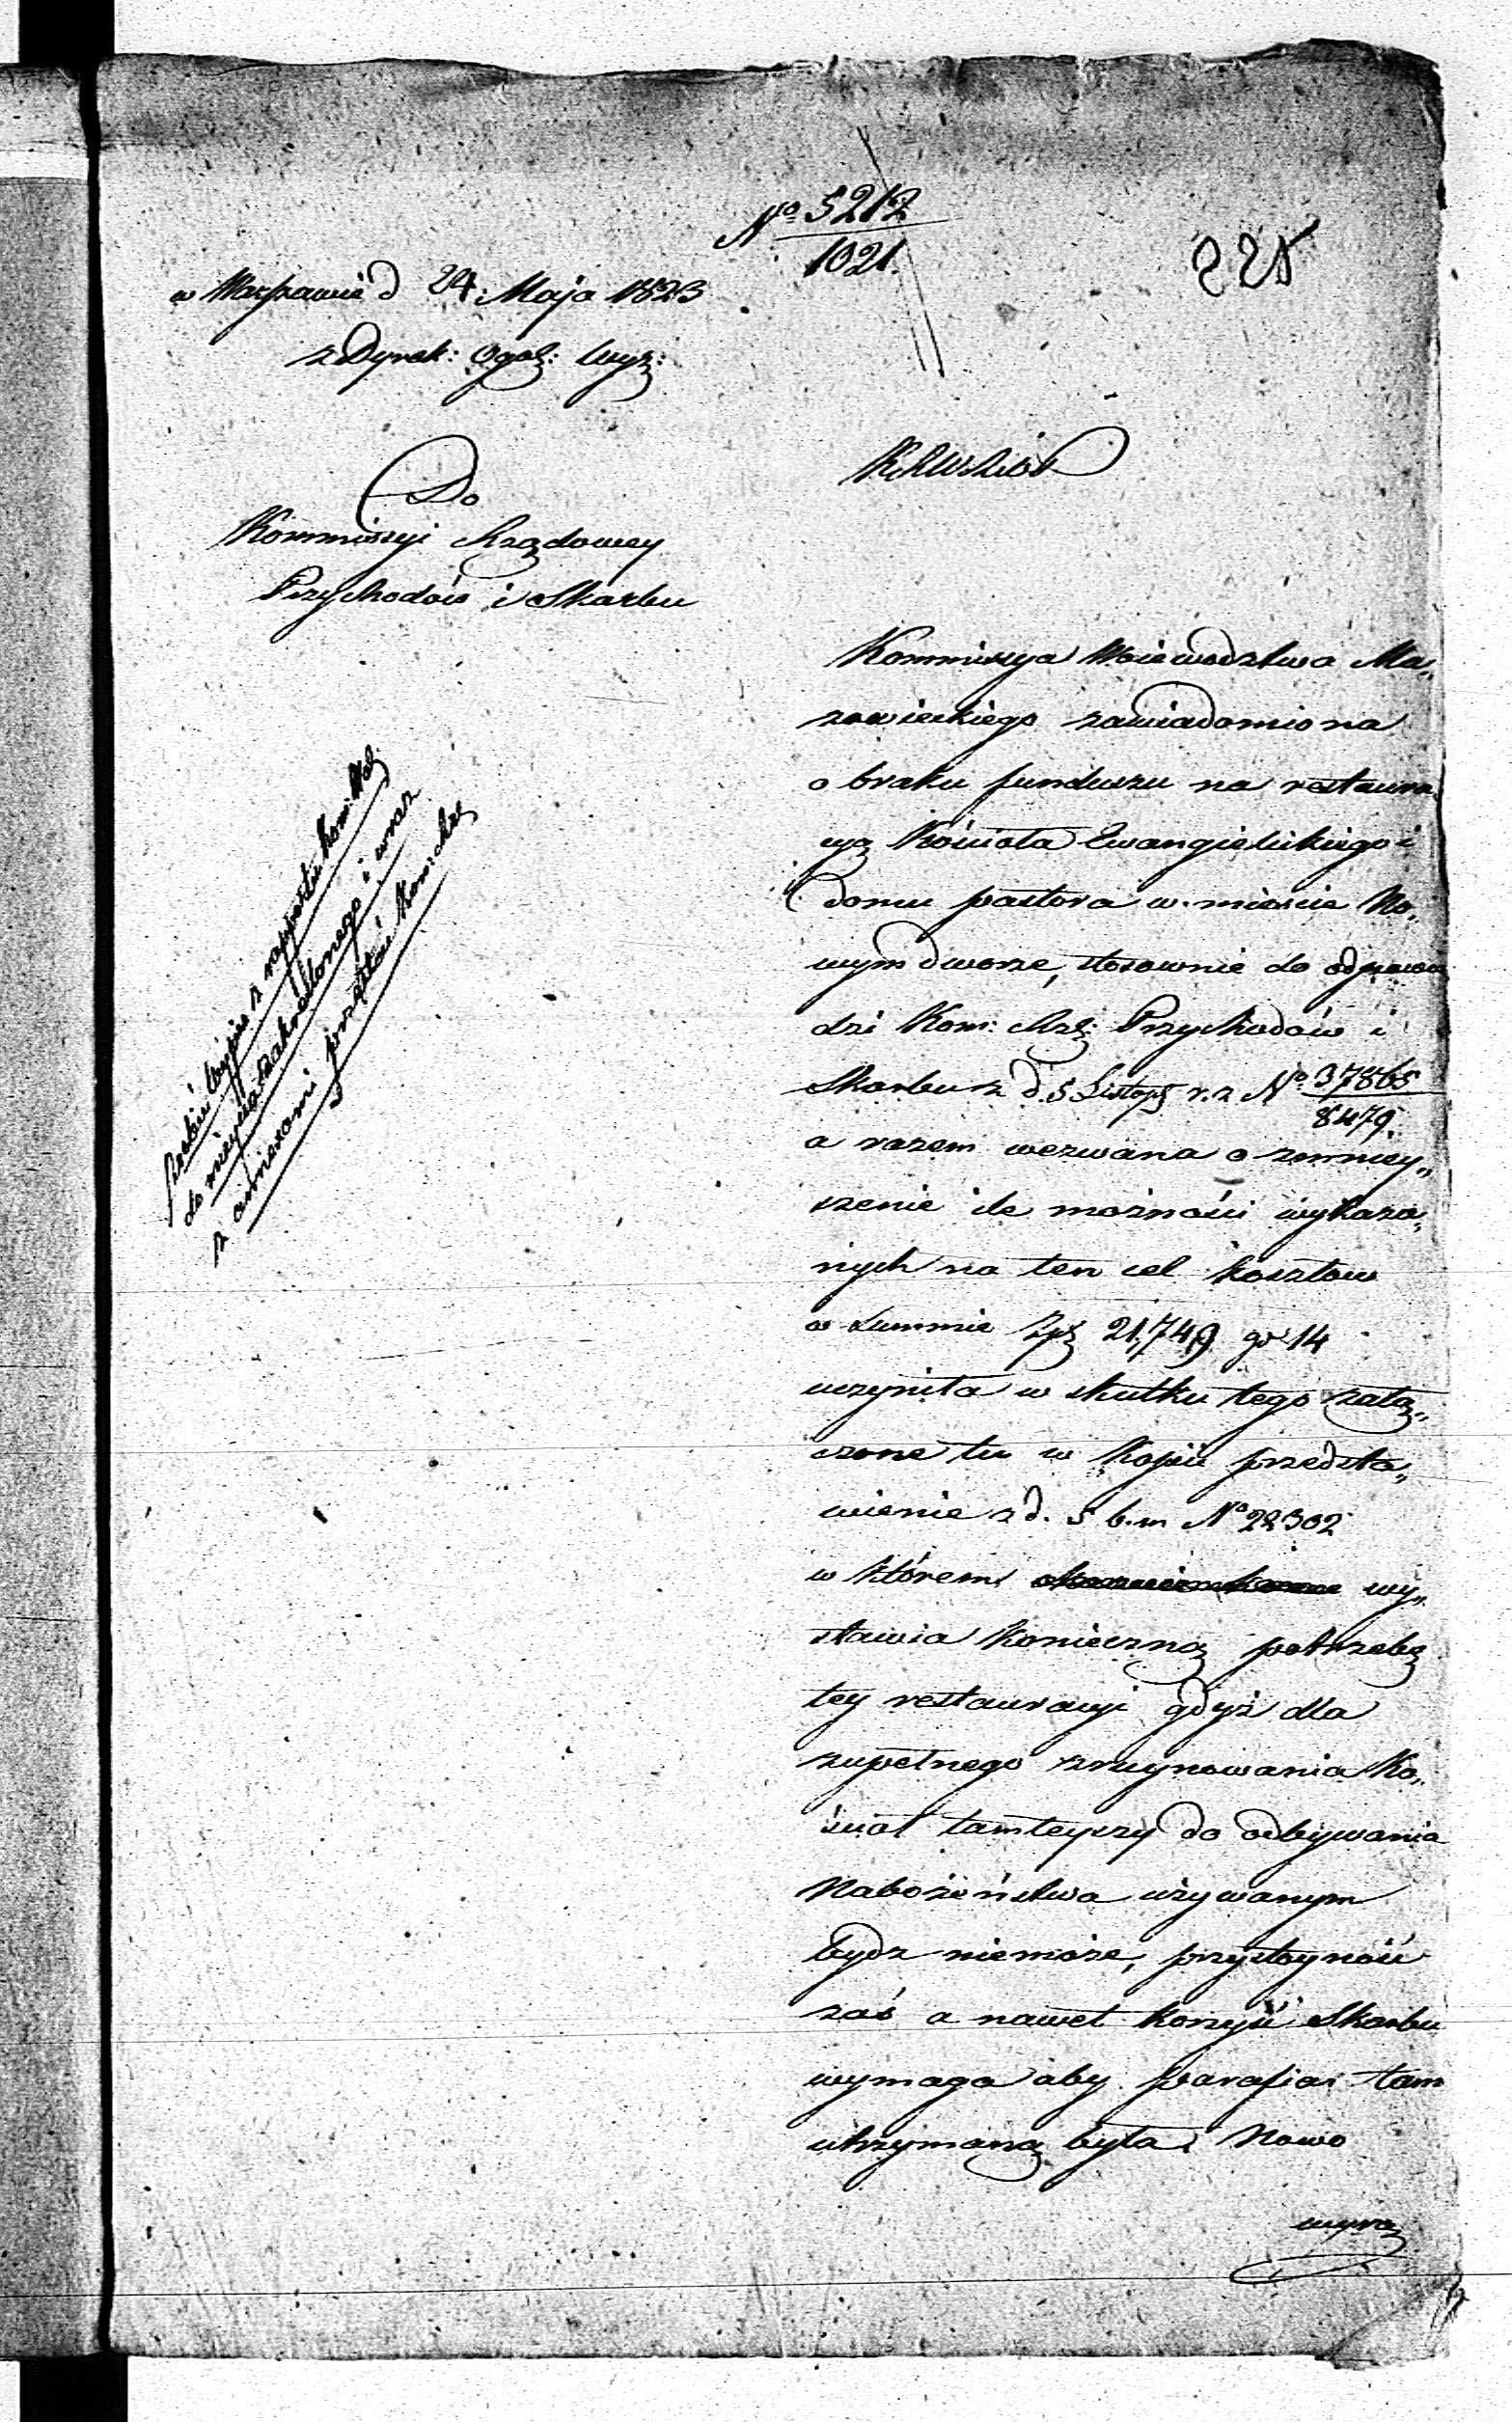 No 5212
1021.
225
w Warszawie d 24. Maja 1823
z Dyrek: Ogol: Wyz:
Do
Kommissyi Rządowey
Przychodów i Skarbu
KRWRiOP
Kommissya Woiewodztwa Ma„
zowieckiego zawiadomiona
o braku funduszu na restaura„
cyą Kościoła Ewangielickiego i
domu pastora w mieście No„
wym dworze, stosownie do odpowie
dzi Kom: Rzl: Przychodów i
Skarbu z d. 5 Listop r. z No 37865
8479.
a razem wezwana o zmniey„
szenie ile możności wykaza„
nych na ten cel kosztow
w summie Zpl 21,749 gr 14
uczyniła w skutku tego załą„
czone tu w kopii przedsta„
wienie z d. 5 b. m No 22302
w którem wy„
stawia konieczną potrzebę
tey restauracyi gdyż dla
zupełnego zruynowania Ko„
ściół tamteyszy do odbywania
Nabożeństwa używanym
bydz niemoże, przystoyność
zaś a nawet korzyść Skarbu
wymaga aby parafia tam
utrzymaną była. Nowo
wyra
wypis z rapportu Kom: Maz
do mieysca zakreślonego i wraz
z anszlagami